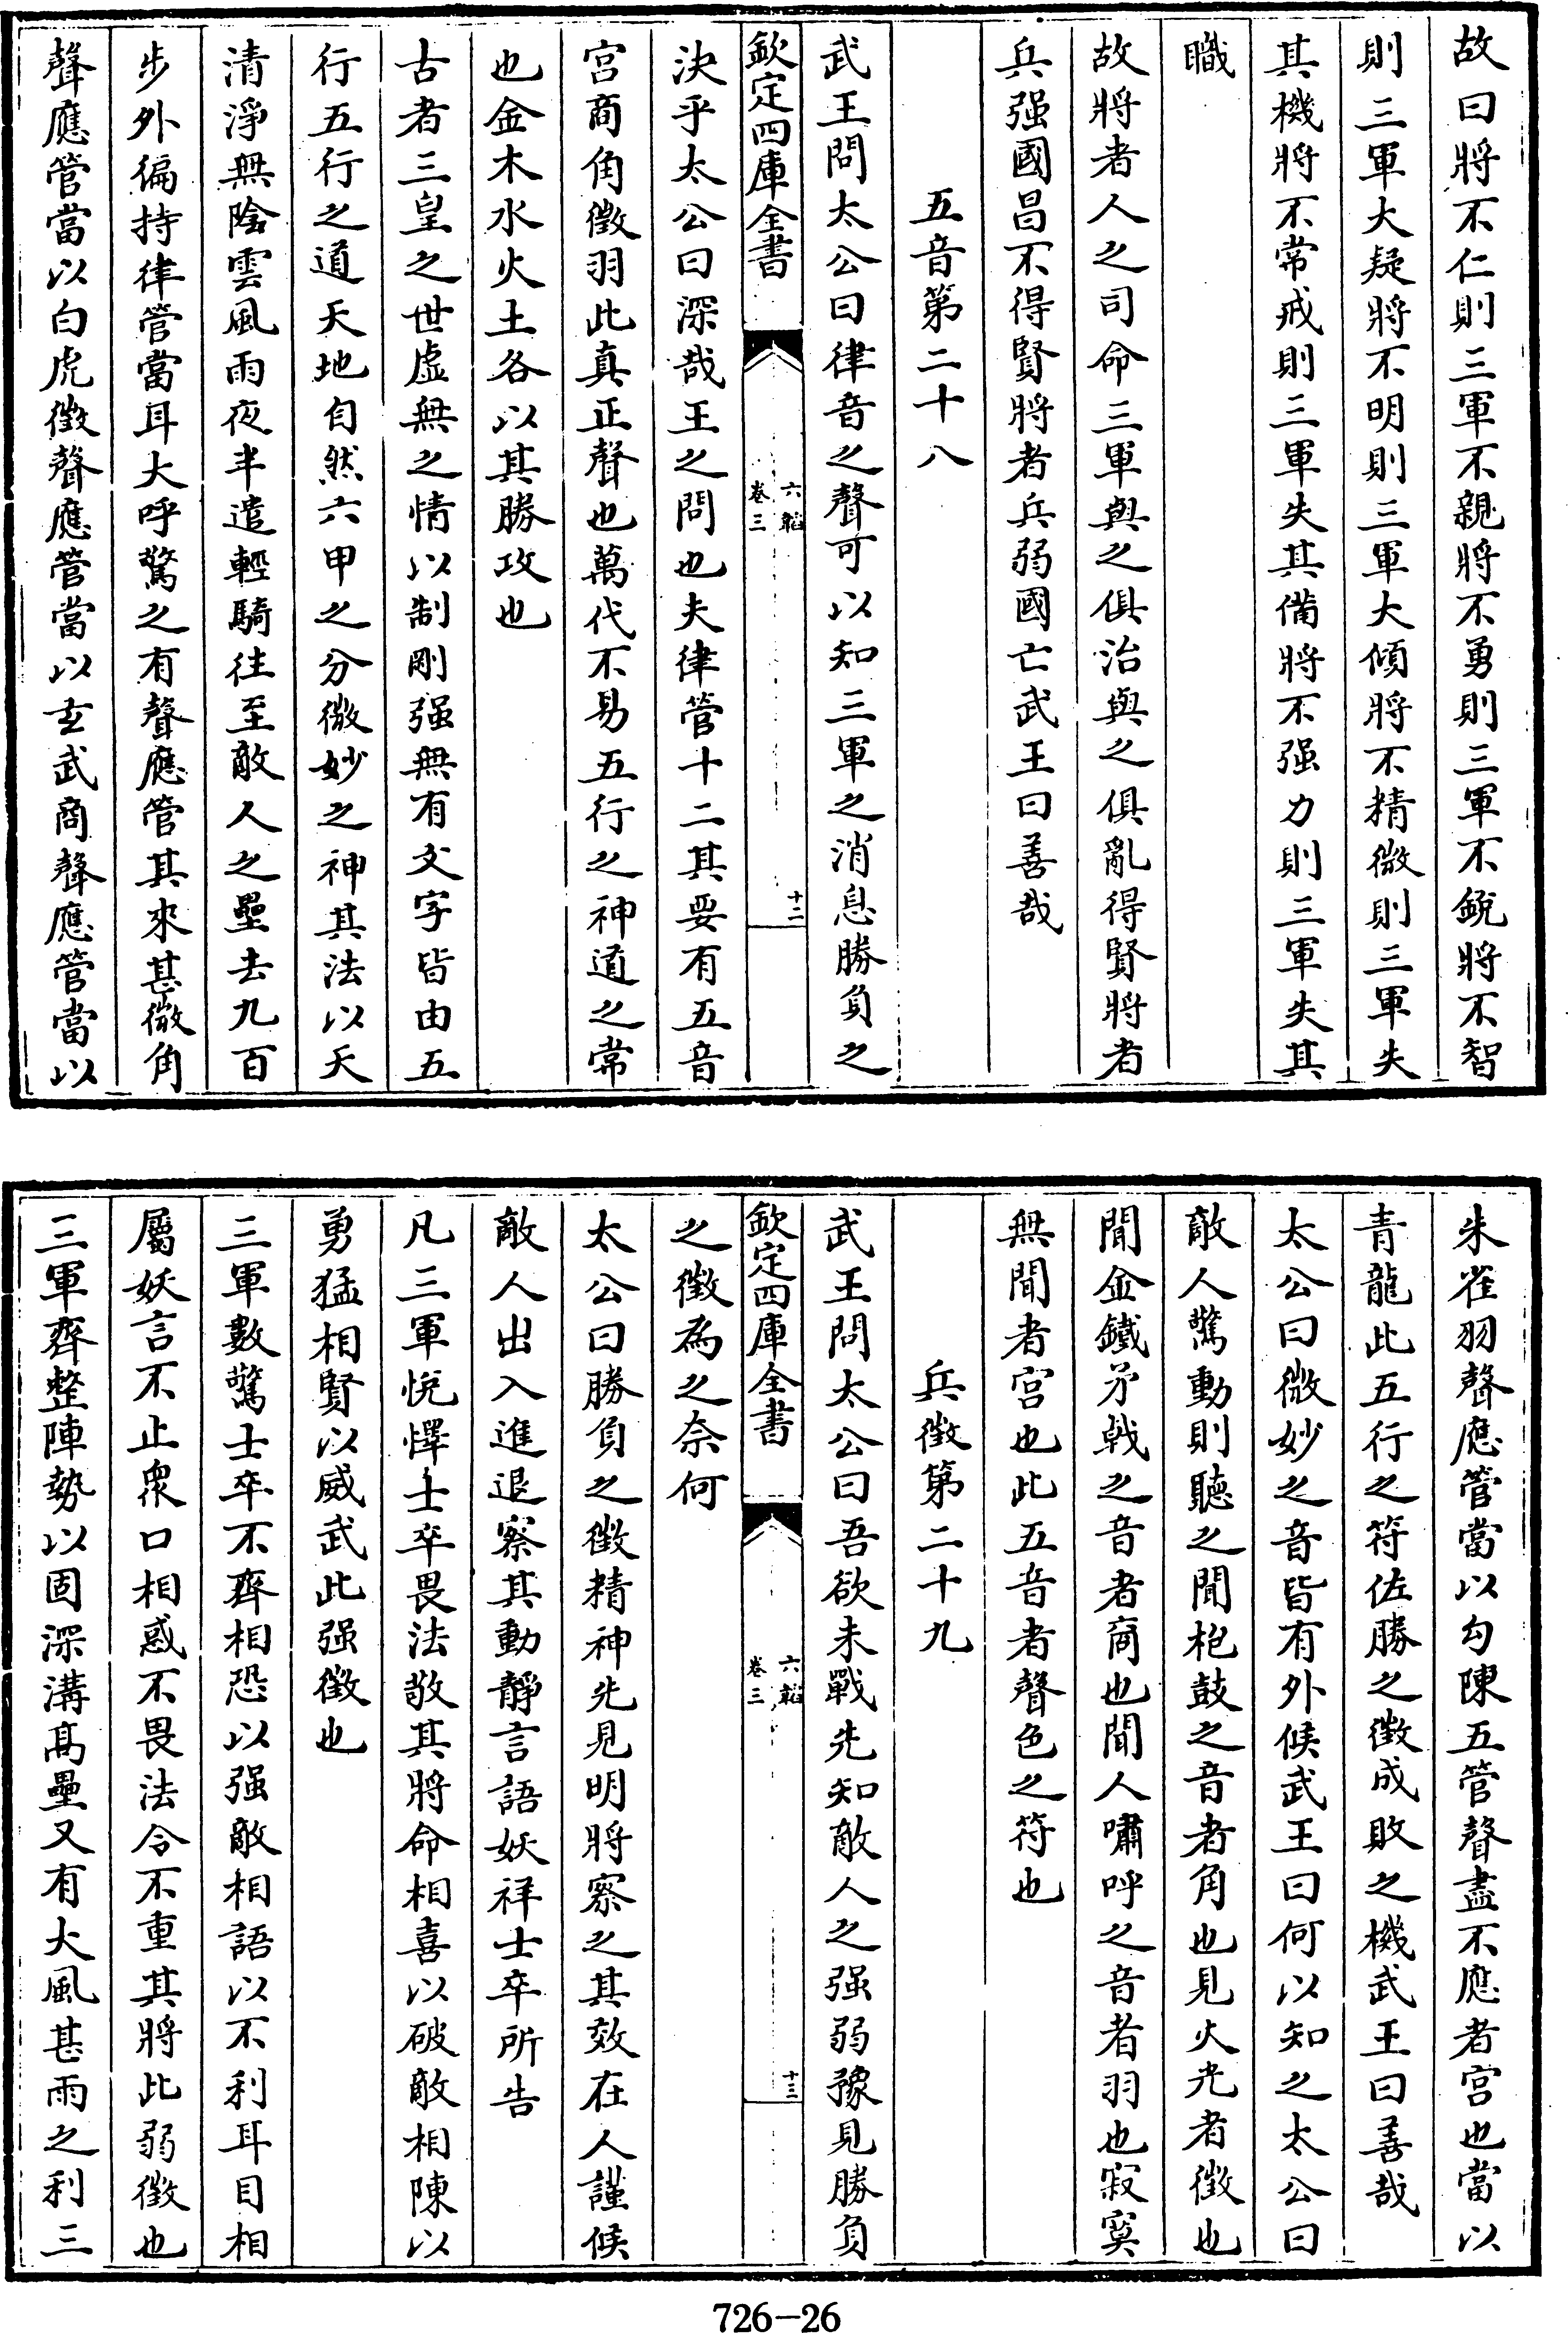 故曰將不仁則三軍不親將不勇則三軍不銳將不智
則三軍大疑將不明則三軍大傾將不精微則三軍失
其機將不常戒則三軍失其備將不强力則三軍失其
職
故將者人之司命三軍與之俱治與之俱亂得賢將者
兵强國昌不得賢將者兵弱國亡武王曰善哉
五音第二十八
武王問太公曰律音之聲可以知三軍之消息勝負之
欽定四庫全書
六韜
卷三
十二
決乎太公曰深哉王之問也夫律管十二其要有五音
宫商角徵羽此真正聲也萬代不易五行之神道之常
也金木水火土各以其勝攻也
古者三皇之世虚無之情以制剛强無有文字皆由五
行五行之道天地自然六甲之分微妙之神其法以天
清淨無陰雲風雨夜半遣輕騎往至敵人之壘去九百
步外偏持律管當耳大呼驚之有聲應管其來甚微角
聲應管當以白虎徵聲應管當以玄武商聲應管當以
朱雀羽聲應管當以勾陳五管聲盡不應者宫也當以
青龍此五行之符佐勝之徵成敗之機武王曰善哉
太公曰微妙之音皆有外候武王曰何以知之太公曰
敵人驚動則聽之聞枹鼓之音者角也見火光者徵也
聞金鐵矛戟之音者商也聞人嘯呼之音者羽也寂寞
無聞者宫也此五音者聲色之符也
兵徵第二十九
武王問太公曰吾欲未戰先知敵人之强弱豫見勝負
欽定四庫全書
六韜
卷三
十三
之徵為之奈何
太公曰勝負之徵精神先見明將察之其效在人謹候
敵人出入進退察其動靜言語妖祥士卒所告
凡三軍悅懌士卒畏法敬其將命相喜以破敵相陳以
勇猛相賢以威武此强徵也
三軍數驚士卒不齊相恐以强敵相語以不利耳目相
屬妖言不止衆口相惑不畏法令不重其將此弱徵也
三軍齊整陣勢以固深溝高壘又有大風甚雨之利三
726-26